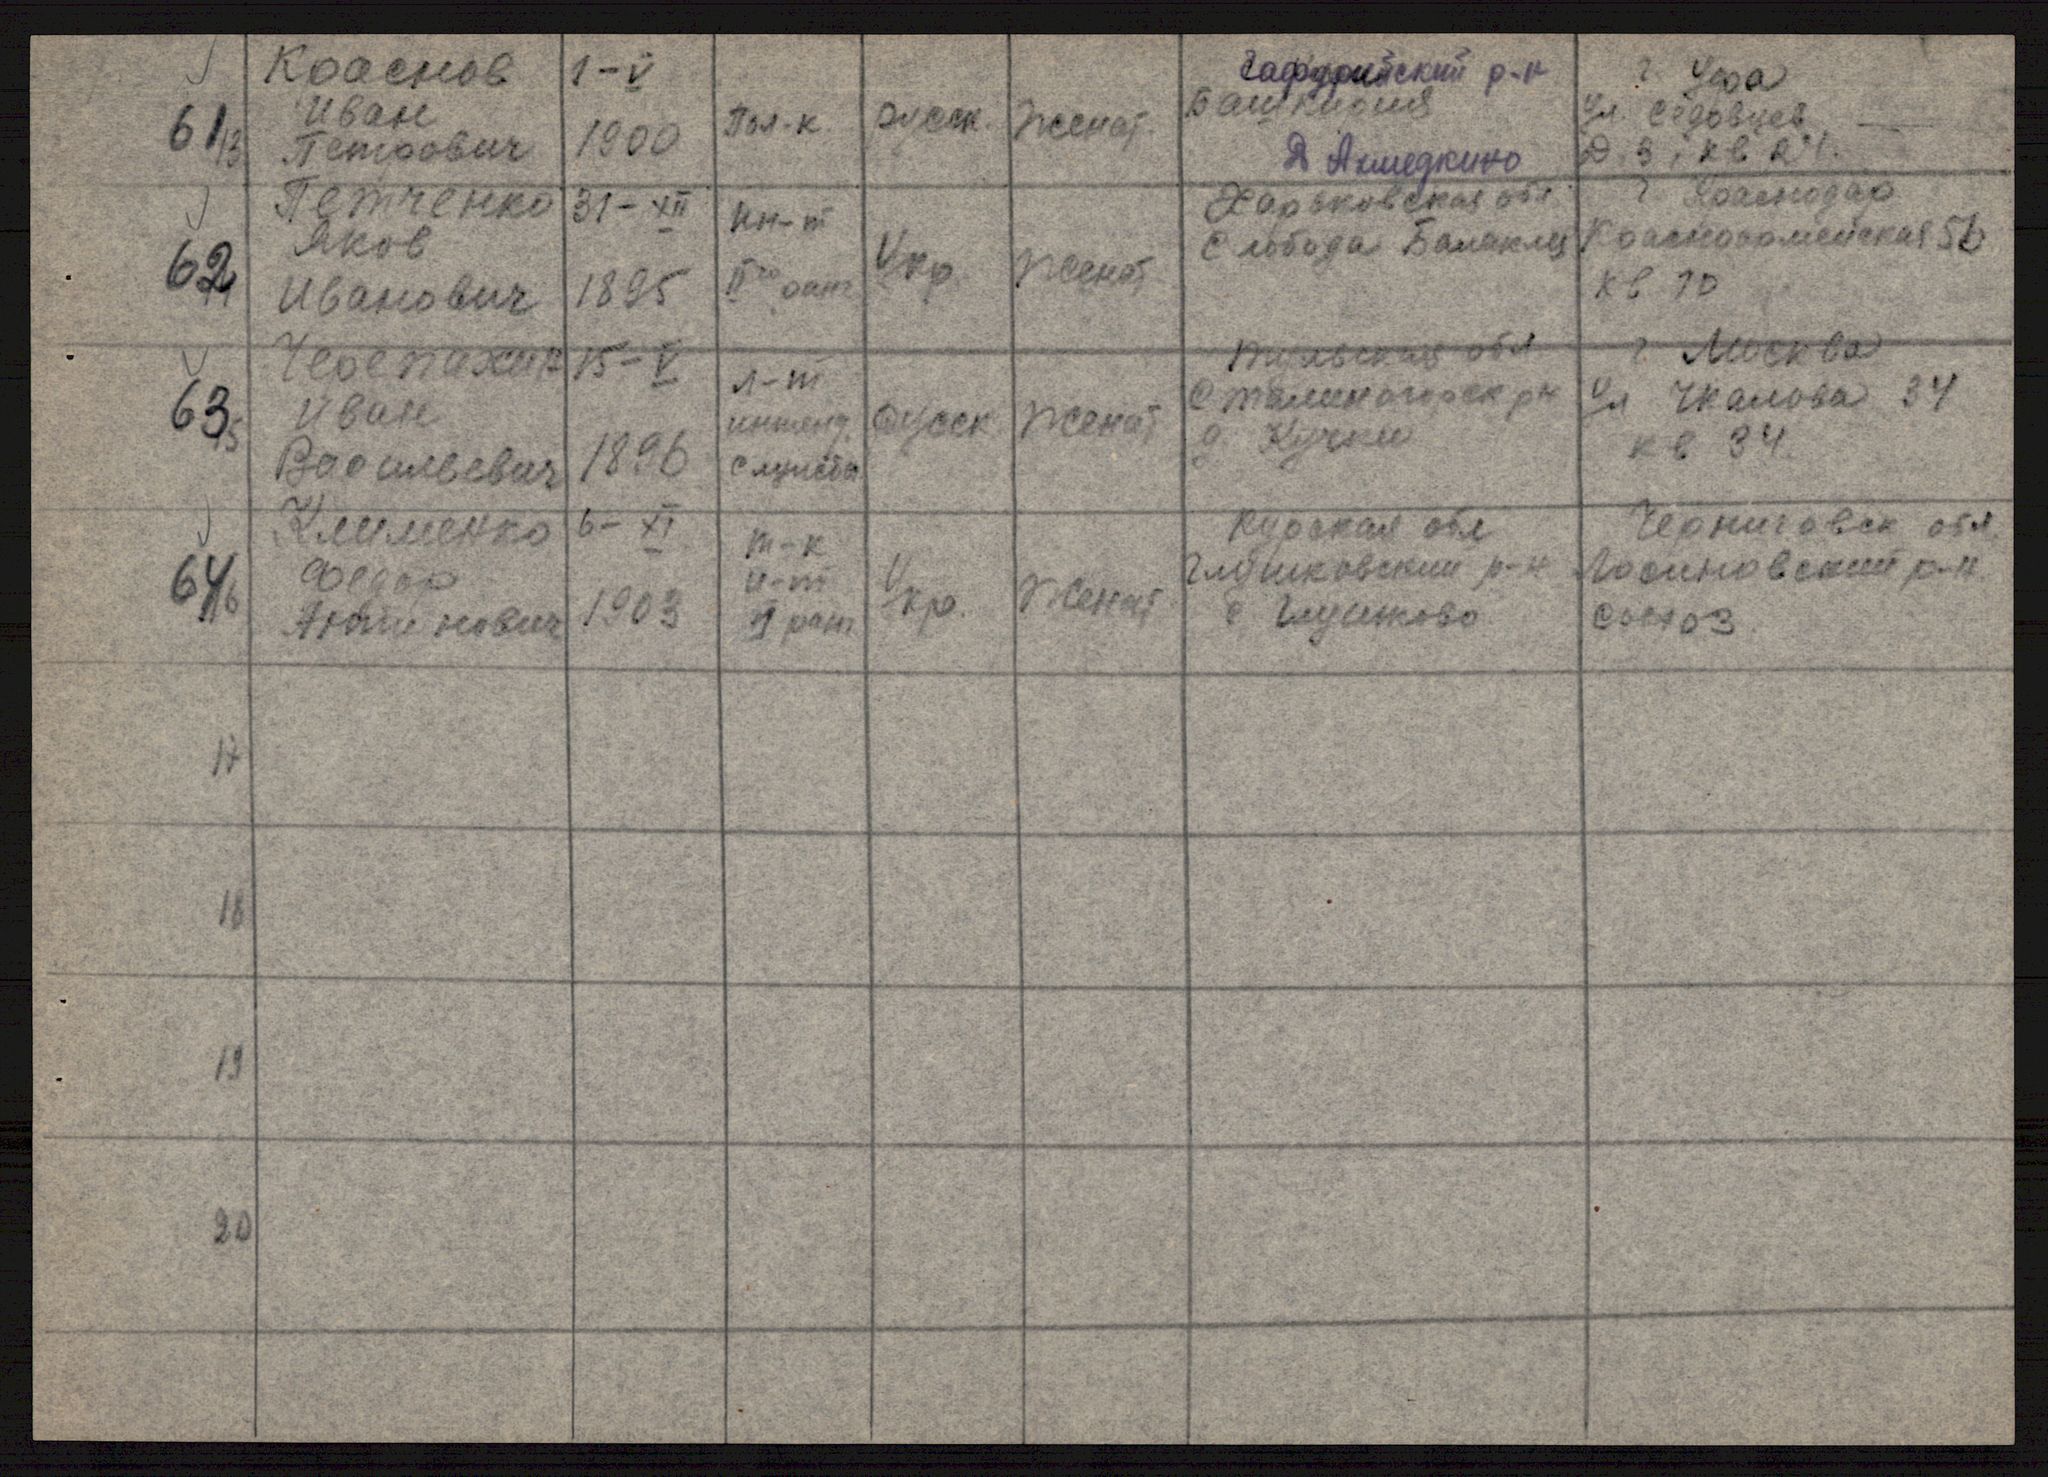 61/13 Краснов Иван Петрович 1-V 1900 Пол-к. русск. Женат. Гафурийский р-н Башкирия Д Ахмедкино г Уфа ул. Седовцев Д. 3, кв 24.
62/14 Петченко Яков Иванович 31-XII 1895 Ин-т IIго ранг Укр. Женат Харьковская обл Слобода Балаклц г Краснодар Красноармейская 56 кв 10
63/15 Черепахин Иван Васильевич 15-V 1896 л-т интенд. службы русск Женат Тульская обл Сталиногорск рн д Кучки г Москва ул Чкалова 34 кв 34.
64/16 Клименко Федор 6-XI 1903 т-к и-т I ранг Укр. Женат Курская обл Глушковский р-н с Глушково Черниговск обл. Лосиновский р-н
17
18
19
20